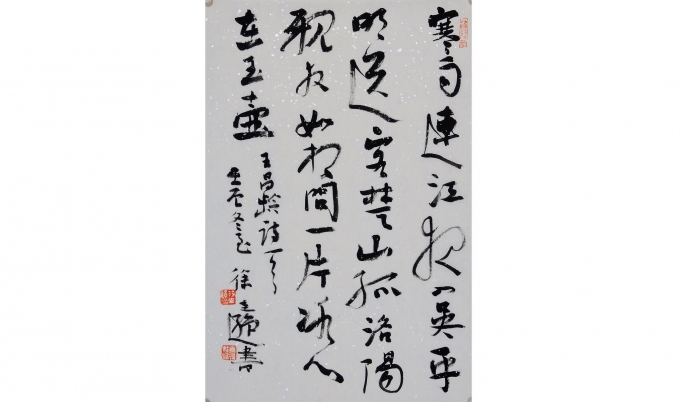 寒雨連江夜入吳平
明送客楚山孤洛陽
親友如相問一片冰心
在玉壺
王昌齡詩一首
壬辰冬至 徐 書